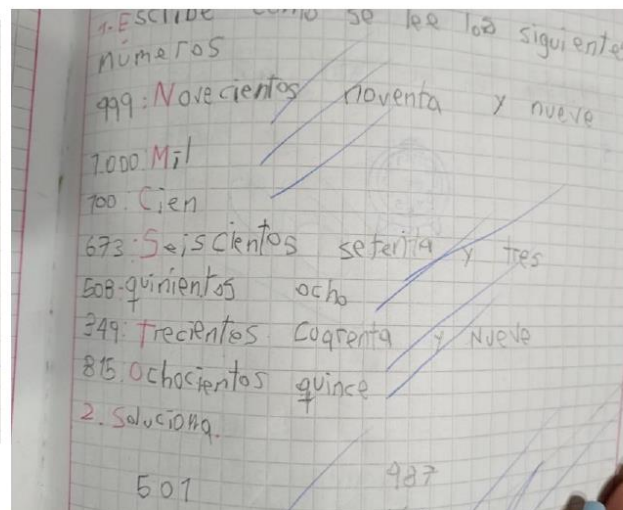 1. Escribe como se lee los siguiente
números
999: Novecientos noventa y nueve
1.000: Mil
100: Cien
673: Seiscientos setenta y tres
508: quinientos ocho
349: Trecientos coarenta y Nueve
815: Ochocientos quince
2. Soluciona.
501 487